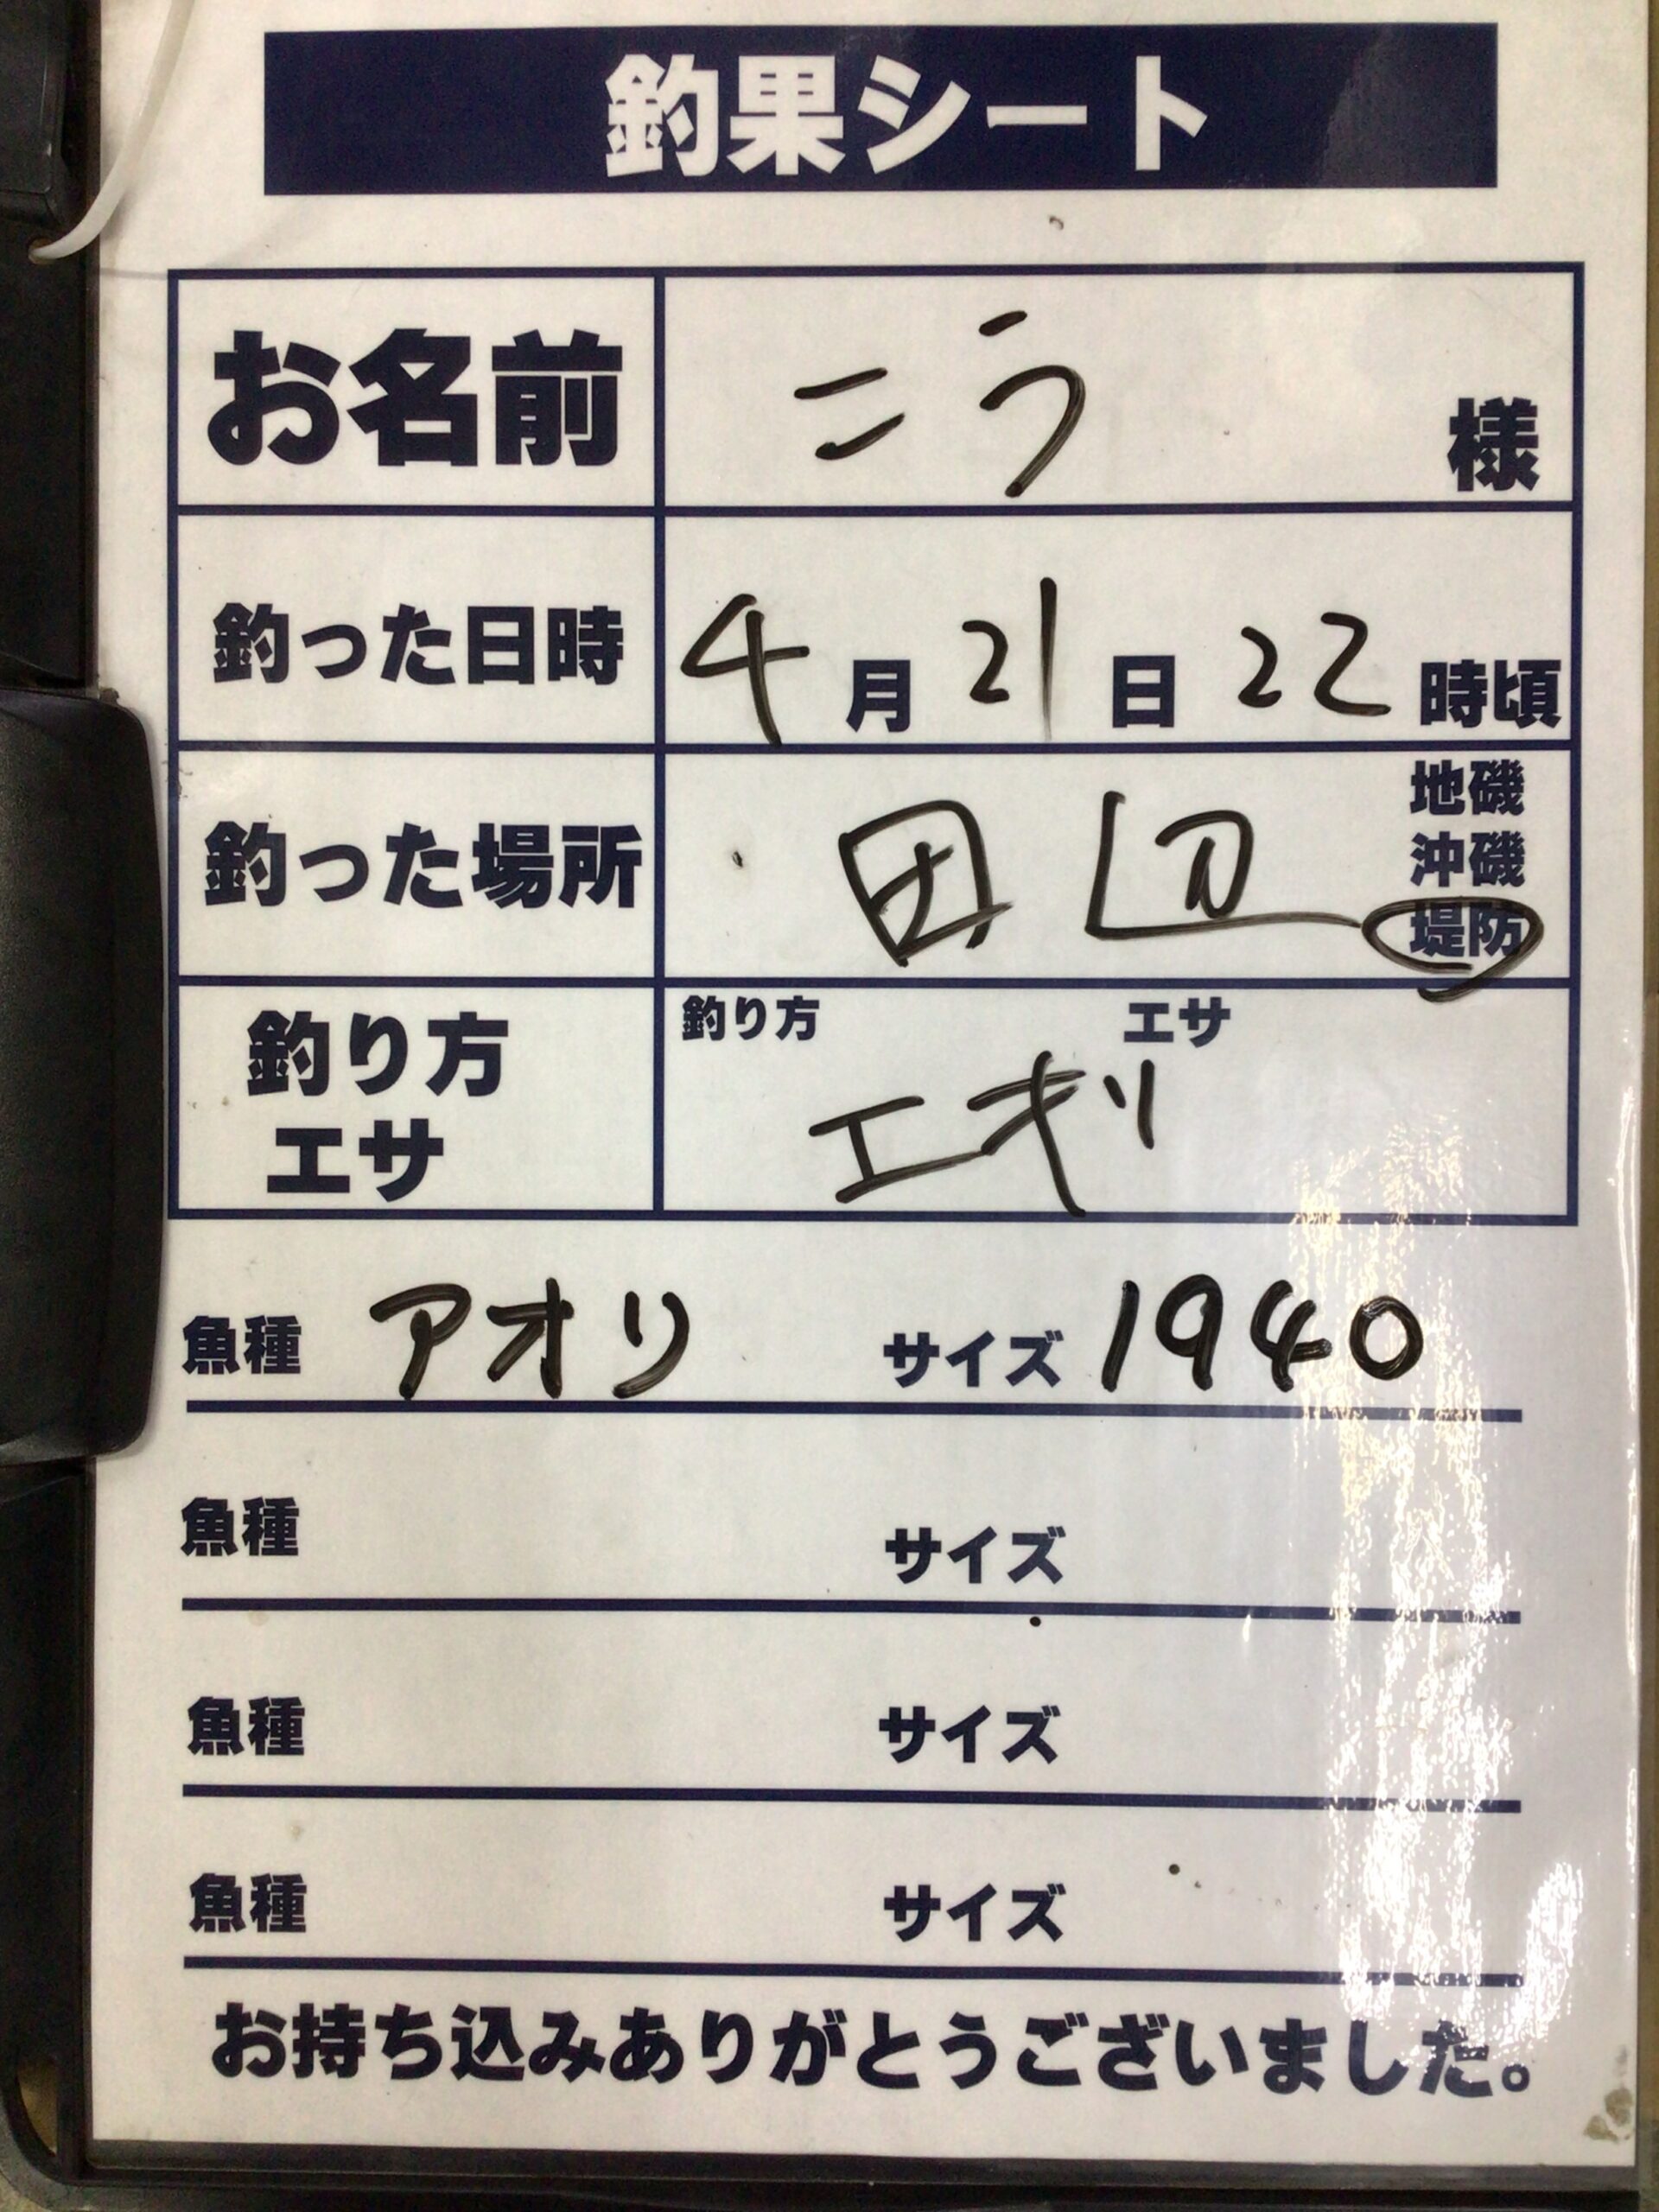 釣果シート
お名前 こう 様
釣った日時 4月21日22時頃
釣った場所 田辺 地磯
沖磯
堤防
釣り方 エサ
釣り方
エサ
エギ
魚種 アオリ サイズ 1940
魚種 サイズ
魚種 サイズ
魚種 サイズ
お持ち込みありがとうございました。